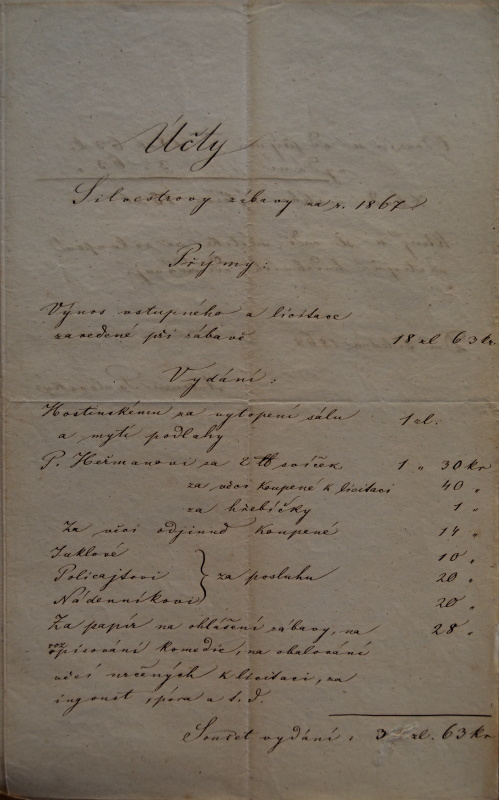 Účty
Silvestrovy zábavy na r. 1867
Přýmy:
Výnos vstupného a licitace
zavedené při zábavě 18 zl 63 kr.
Vydání:
Hostinskému za vytopení sálu 1 zl.
a mytí podlahy
P. Heřmanovi za 2 ℔ svíček 1 " 30 kr
za věci koupené k licitaci 40 "
za hřebíčky 1 "
Za věci odjinud koupené 14 "
Juklové 10 "
Policajtovi } za posluhu 20 "
Nádenníkovi 20 "
Za papír na ohlášení zábavy, na 28 "
rozpisování komedie, na obalování
věcí určených k licitaci, za
ingoust, péra a t. d.
Součet vydání: 3 zl. 63 kr